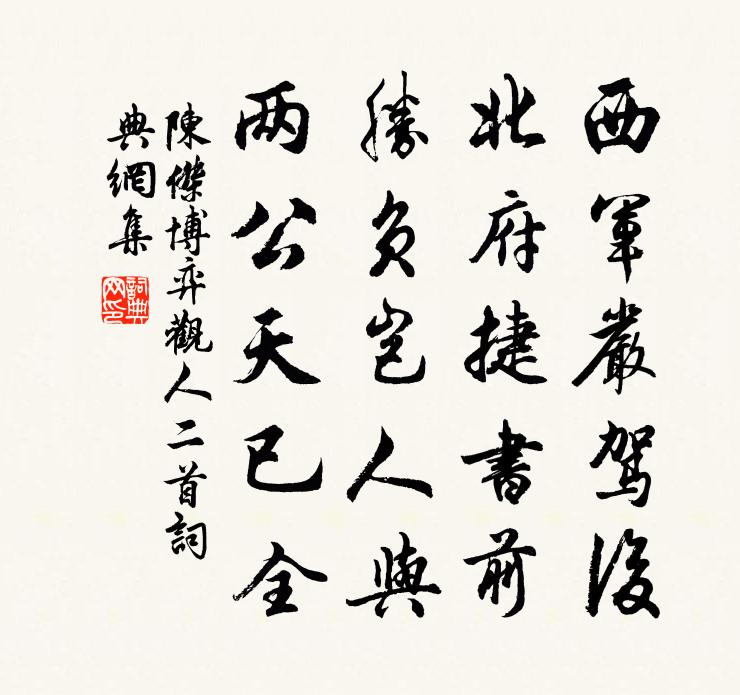 西軍嚴駕後
北府捷書前
勝負豈人與
兩公天已全
陳傑博弈觀人二首詞
典網集
詞典網印